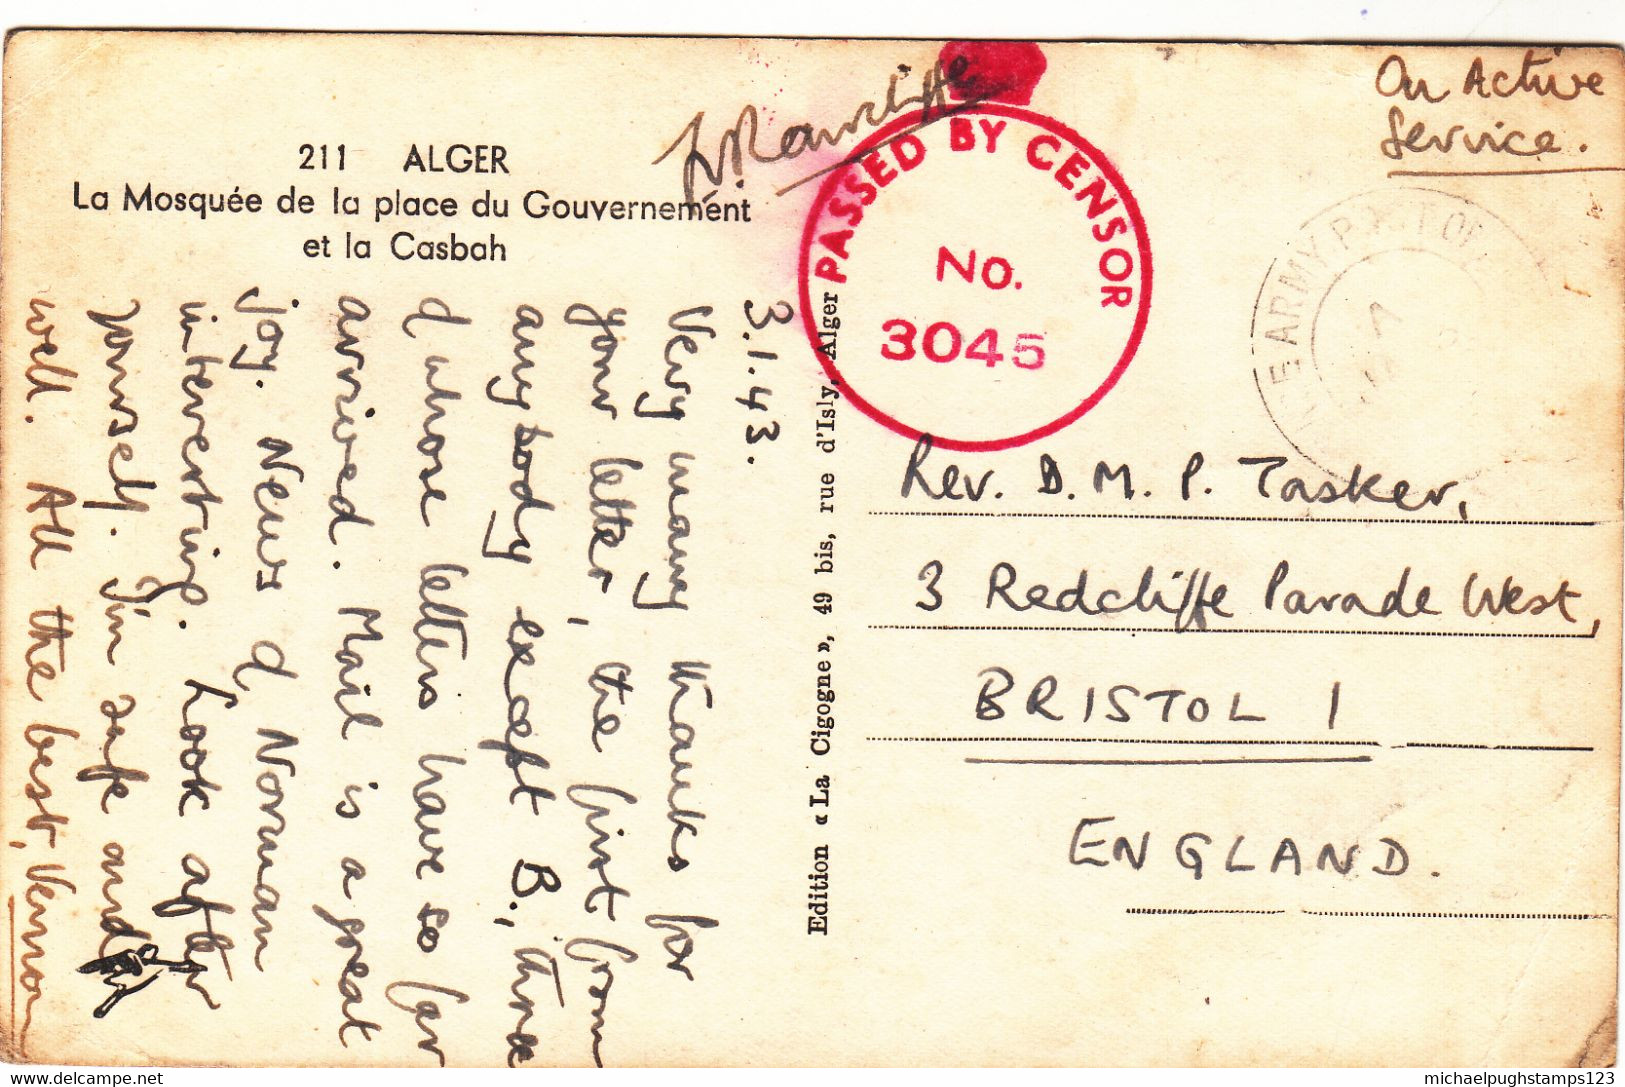 On Active
Service.
211 ALGER
La Mosquée de la place du Gouvernement
et la Casbah
PASSED BY CENSOR
No.
3045
ARMY POST OF
3.1.43.
Very many thanks for
your letter, the first from
anybody except B., three
of whose letters have so far
arrived. Mail is a great
joy. News of Norman
interesting. Look after
yourself. I'm safe and
well. All the best, Vernon
Edition « La Cigogne », 49 bis, rue d'Isly, Alger
Rev. D. M. P. Tasker,
3 Redcliffe Parade West,
BRISTOL 1
ENGLAND.
delcampe.net
michaelpughstamps123